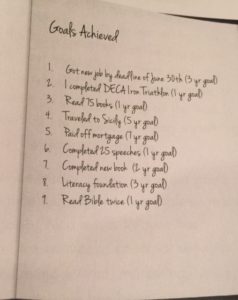 Goals Achieved
1. Got new job by deadline of June 30th (3 yr goal)
2. I completed DECA Iron Triathlon (1 yr goal)
3. Read 75 books (1 yr goal)
4. Traveled to Sicily (5 yr goal)
5. Paid off mortgage (7 yr goal)
6. Completed 25 speeches (1 yr goal)
7. Completed new book (2 yr goal)
8. Literacy foundation (3 yr goal)
9. Read Bible twice (1 yr goal)